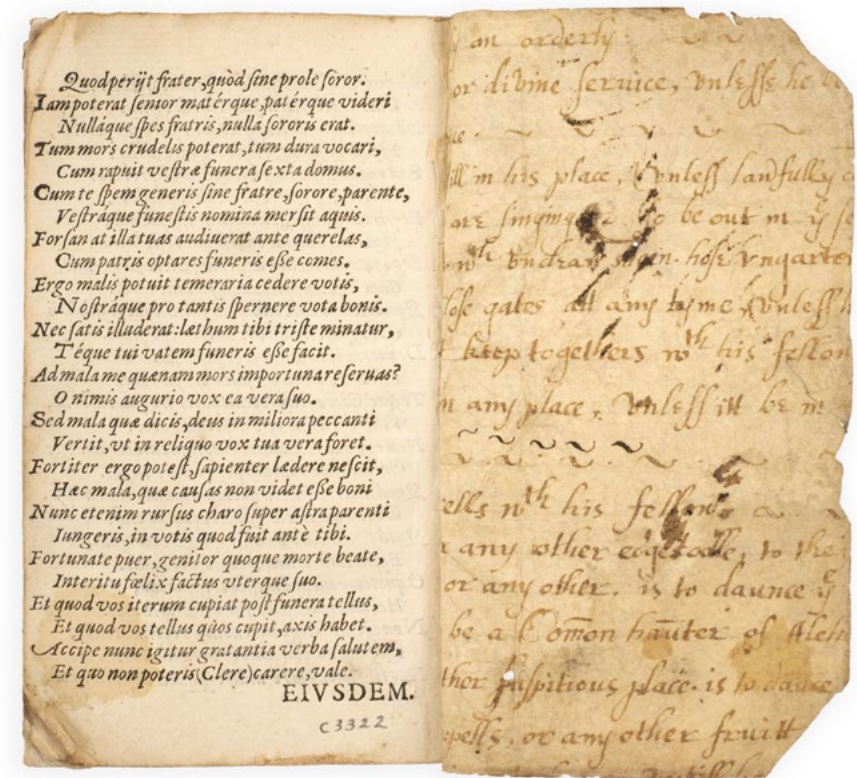 Quod perijt frater, quòd sine prole soror.
Iam poterat senior matérque, patérque videri
Nulláque spes fratris, nulla sororis erat.
Tum mors crudelis poterat, tum dura vocari,
Cum rapuit vestræ funera sexta domus.
Cum te spem generis sine fratre, sorore, parente,
Vestráque funestis nomina mersit aquis.
Forsan at illa tuas audiuerat ante querelas,
Cum patris optares funeris esse comes.
Ergo malis potuit temeraria cedere votis,
Nostráque pro tantis spernere vota bonis.
Nec satis illuderat: læthum tibi triste minatur,
Téque tui vatem funeris esse facit.
Ad mala me quænam mors importuna reseruas?
O nimis augurio vox ea vera suo.
Sed mala quæ dicis, deus in miliora peccanti
Vertit, vt in reliquo vox tua vera foret.
Fortiter ergo potest, sapienter lædere nescit,
Hæc mala, quæ causas non videt esse boni
Nunc etenim rursus charo super astra parenti
Iungeris, in votis quod fuit antè tibi.
Fortunate puer, genitor quoque morte beate,
Interitu fœlix factus vterque suo.
Et quod vos iterum cupiat post funera tellus,
Et quod vos tellus quos cupit, axis habet.
Accipe nunc igitur gratantia verba salutem,
Et quo non poteris (Clere) carere, vale.
EIVSDEM.
C3322
an orderly
or divine service, vnlesse he
in his place, vnless lawfully
are singinge to be out in yͤ
wᵗʰ vndrawn hose vngarte
gates att any tyme, vnless
keep togethers wᵗʰ his fellow
any place, vnless itt be in
wᵗʰ his fellow
any other edgetoole, to the
or any other. is to daunce yͤ
be a Com̃on hauter of Aleh
ther suspitious place. is to daunce
or any other fruitt